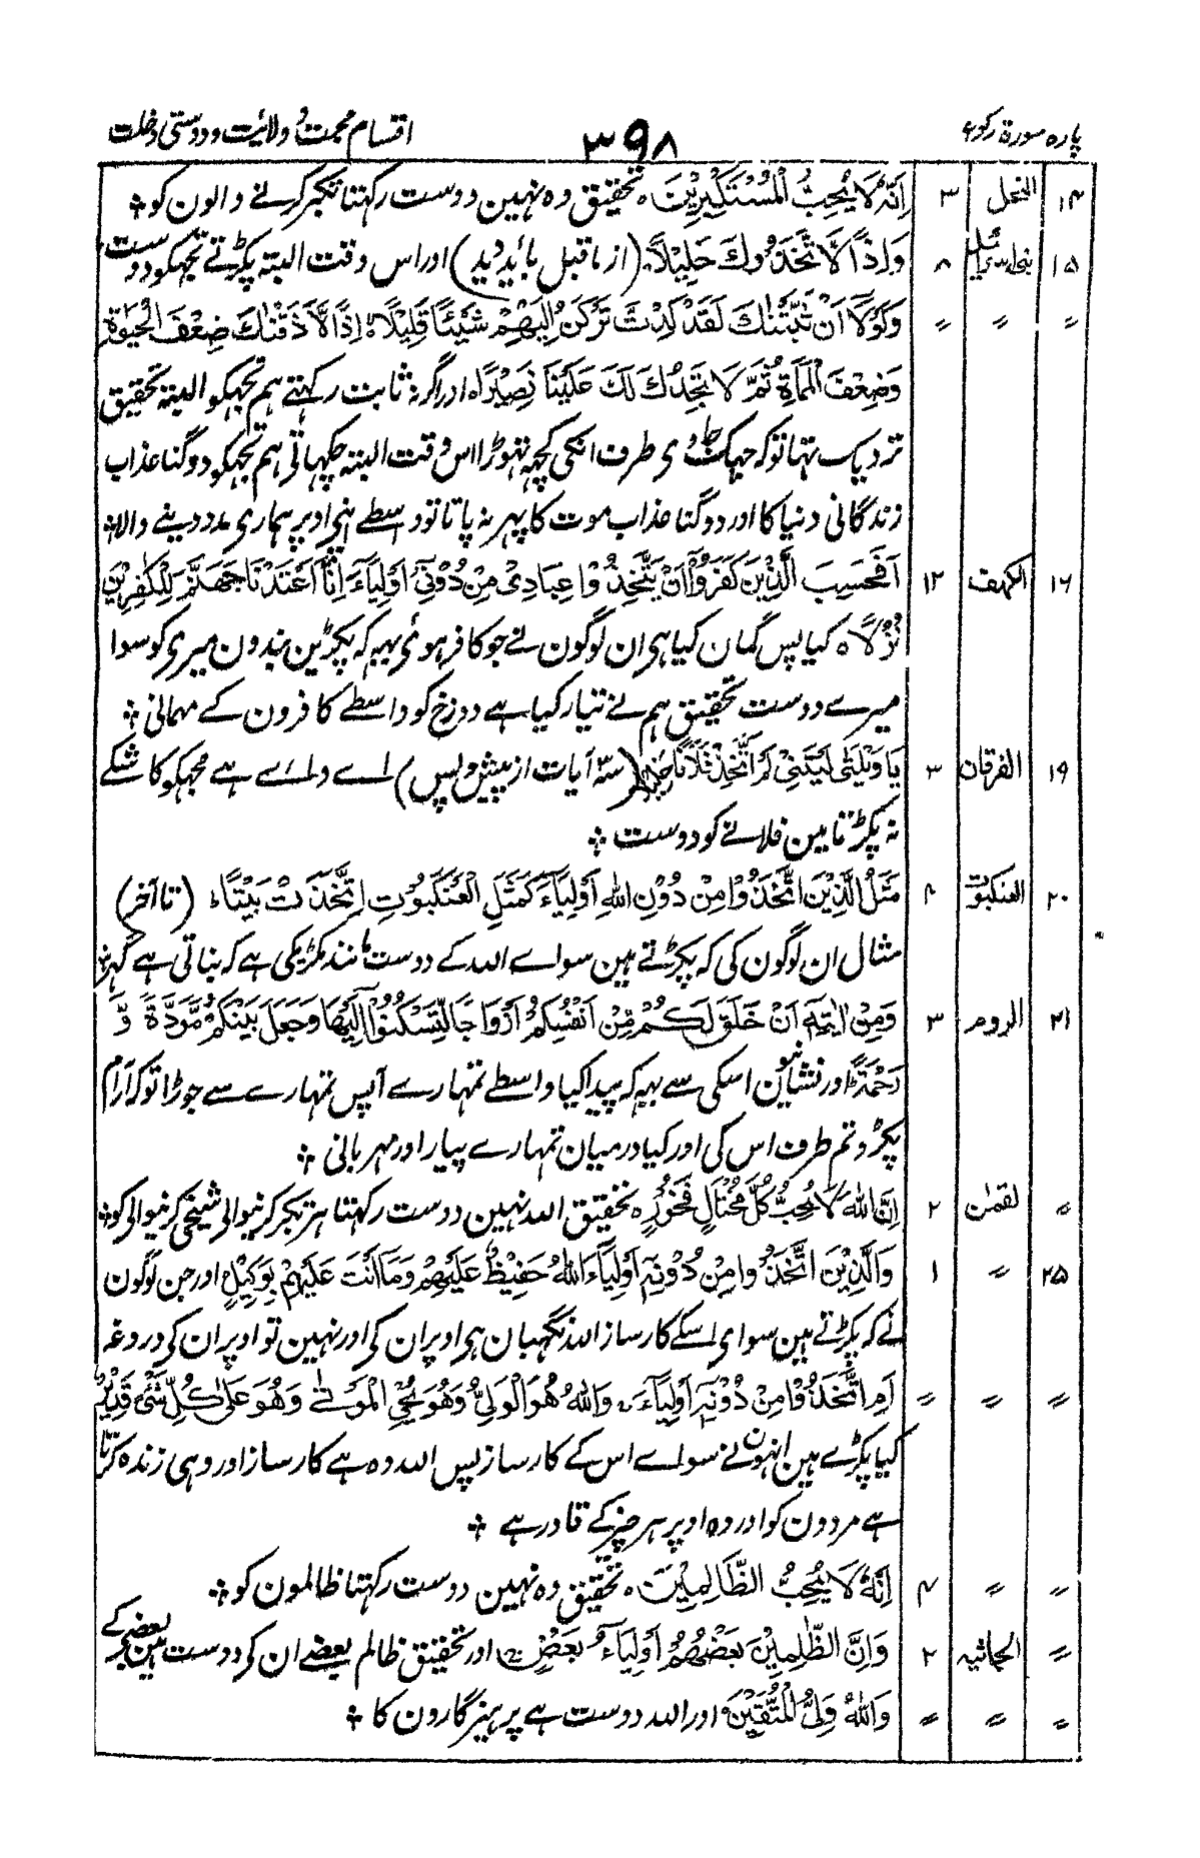 پاره سورة رکوع ۳۹۸ اقسام محبت و ولایت و دوستی و خلت
۱۴ النحل ۳ اِنَّهٗ لَا یُحِبُّ الْمُسْتَکْبِرِیْنَ ہ تحقیق وہ نہین دوست رکہتا تکبر کرنے والون کو ؞
۱۵ بنی اسرائیل ۸ وَاِذًا لَّاتَّخَذُوْكَ خَلِیْلًا (از ماقبل باید دید) اور اس وقت البتہ پکڑتے تجہکو دوست
〃 〃 〃 وَلَوْلَا اَنْ ثَبَّتْنٰكَ لَقَدْ كِدْتَّ تَرْكَنُ اِلَیْهِمْ شَیْئًا قَلِیْلًا ہ اِذًا لَّاَذَقْنٰكَ ضِعْفَ الْحَیٰوةِ
وَضِعْفَ الْمَمَاةِ ثُمَّ لَا تَجِدُ لَكَ عَلَیْنَا نَصِیْرًا ہ اور اگر نہ ثابت رکہتے ہم تجہکو البتہ تحقیق
نزدیک تہا تو کہ جہک جاوی طرف انکی کچہہ تہوڑا اس وقت البتہ چکہاتی ہم تجہکو دوگنا عذاب
زندگانی دنیا کا اور دوگنا عذاب موت کا پہر نہ پاتا تو واسطے اپنی اوپر ہماری مدد دینے والا ؞
۱۶ الکہف ۱۲ اَفَحَسِبَ الَّذِیْنَ كَفَرُوْا اَنْ یَّتَّخِذُوْا عِبَادِیْ مِنْ دُوْنِیْ اَوْلِیَآءَ اِنَّا اَعْتَدْنَا جَهَنَّمَ لِلْكٰفِرِیْنَ
نُزُلًا ہ کیا پس گمان کیا ہی ان لوگون نے جو کافر ہوی یہہ کہ پکڑین بندون میری کو سوا
میرے دوست تحقیق ہم نے تیار کیا ہے دوزخ کو واسطے کافرون کے مہمانی ؞
۱۹ الفرقان ۳ یَا وَیْلَتٰی لَیْتَنِیْ لَمْ اَتَّخِذْ فُلَانًا خَلِیْلًا (سہ آیات از پیش و پس) اے وائے ہے مجہکو کاشکے
نہ پکڑتا مین فلانے کو دوست ؞
۲۰ العنکبوت ۴ مَثَلُ الَّذِیْنَ اتَّخَذُوْا مِنْ دُوْنِ اللهِ اَوْلِیَآءَ كَمَثَلِ الْعَنْكَبُوْتِ اِتَّخَذَتْ بَیْتًا ء (تا آخر)
مثال ان لوگون کی کہ پکڑتے ہین سواے اللہ کے دوست مانند مکڑیکی ہے کہ بناتی ہے گہر ؞
۲۱ الروم ۳ وَمِنْ اٰیٰتِهٖ اَنْ خَلَقَ لَكُمْ مِّنْ اَنْفُسِكُمْ اَزْوَاجًا لِّتَسْكُنُوْا اِلَیْهَا وَجَعَلَ بَیْنَكُمْ مَّوَدَّةً وَّ
رَحْمَةً اور نشانیون اسکی سے یہہ کہ پیدا کیا واسطے تمہارے آپس تمہارے سے جوڑا تو کہ آرام
پکڑو تم طرف اس کی اور کیا درمیان تمہارے پیار اور مہربانی ؞
〃 لقمٰن ۲ اِنَّ اللهَ لَا یُحِبُّ كُلَّ مُخْتَالٍ فَخُوْرٍ ہ تحقیق اللہ نہین دوست رکہتا ہر تکبر کرنیوالی شیخی کرنیوالی کو ؞
۲۵ 〃 ۱ وَالَّذِیْنَ اتَّخَذُوْا مِنْ دُوْنِهٖ اَوْلِیَآءَ اللهُ حَفِیْظٌ عَلَیْهِمْ وَمَا اَنْتَ عَلَیْهِمْ بِوَكِیْلٍ اور جن لوگون
نے کہ پکڑتے ہین سوای اسکے کارساز اللہ نگہبان ہی اوپر ان کی اور نہین تو اوپر ان کی دروغہ
〃 〃 〃 اَمِ اتَّخَذُوْا مِنْ دُوْنِهٖ اَوْلِیَآءَ ، وَاللهُ هُوَ الْوَلِیُّ وَهُوَ یُحْیِ الْمَوْتٰی وَهُوَ عَلٰی كُلِّ شَیْءٍ قَدِیْرٌ
کیا پکڑے ہین انہون نے سواے اس کے کارساز پس اللہ وہ ہے کارساز اور وہی زندہ کرتا
ہے مردون کو اور وہ اوپر ہر چیز کے قادر ہے ؞
〃 〃 ۴ اِنَّهٗ لَا یُحِبُّ الظَّالِمِیْنَ ہ تحقیق وہ نہین دوست رکہتا ظالمون کو ؞
〃 الجاثیہ ۲ وَاِنَّ الظّٰلِمِیْنَ بَعْضُهُمْ اَوْلِیَآءُ بَعْضٍ اور تحقیق ظالم بعضے ان کے دوست ہین بعضے کے
〃 〃 〃 وَاللهُ وَلِیُّ الْمُتَّقِیْنَ اور اللہ دوست ہے پرہیزگارون کا ؞